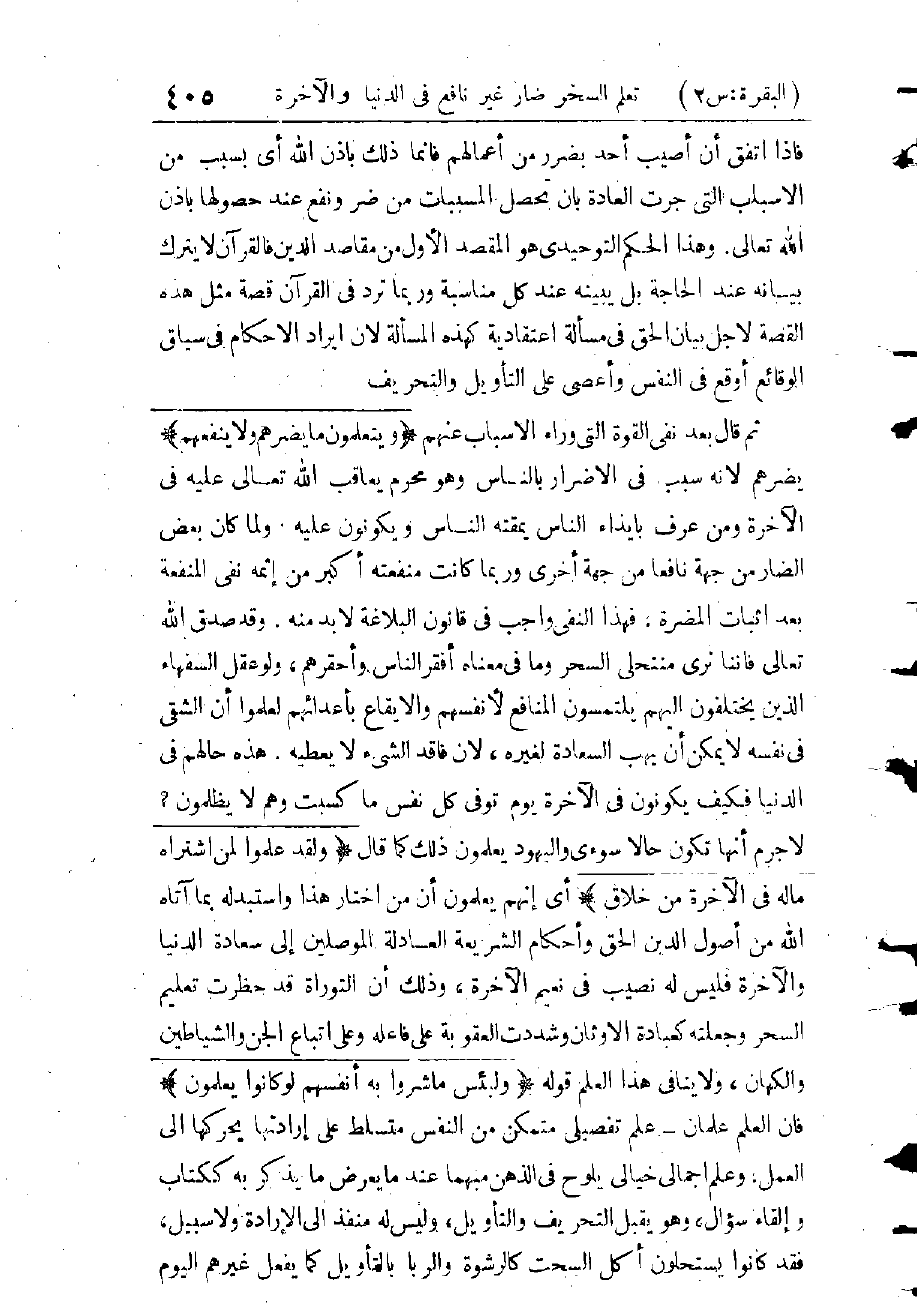 (البقرة:س٢) تعلم السحر ضار غير نافع فى الدنيا والآخرة ٤٠٥
فاذا اتفق أن أصيب أحد بضرر من أعمالهم فانما ذلك باذن الله أى بسبب من
الاسباب التى جرت العادة بان تحصل المسببات من ضر ونفع عند حصولها باذن
الله تعالى. وهذا الحكم التوحيدى هو المقصد الأول من مقاصد الدين فالقرآن لا يترك
بيانه عند الحاجة بل يبينه عند كل مناسبة وربما ترد فى القرآن قصة مثل هذه
القصة لاجل بيان الحق فى مسألة اعتقادية كهذه المسألة لان ايراد الاحكام فى سياق
الوقائع أوقع فى النفس وأعصى على التأويل والتحريف
ثم قال بعد نفى القوة التى وراء الاسباب عنهم ﴿ويتعلمون ما يضرهم ولا ينفعهم﴾
يضرهم لانه سبب فى الاضرار بالناس وهو محرم يعاقب الله تعالى عليه فى
الآخرة ومن عرف بايذاء الناس يمقته الناس ويكونون عليه . ولما كان بعض
الضار من جهة نافعا من جهة أخرى وربما كانت منفعته أكبر من إثمه نفى المنفعة
بعد اثبات المضرة ، فهذا النفى واجب فى قانون البلاغة لابد منه . وقد صدق الله
تعالى فاننا نرى منتحلى السحر وما فى معناه أفقر الناس وأحقرهم ، ولو عقل السفهاء
الذين يختلفون اليهم يلتمسون المنافع لأنفسهم والايقاع بأعدائهم لعلموا أن الشقى
فى نفسه لا يمكن أن يهب السعادة لغيره ، لان فاقد الشىء لا يعطيه . هذه حالهم فى
الدنيا فكيف يكونون فى الآخرة يوم توفى كل نفس ما كسبت وهم لا يظلمون ؟
لاجرم أنها تكون حالا سوءى واليهود يعلمون ذلك كما قال ﴿ ولقد علموا لمن اشتراه
ماله فى الآخرة من خلاق ﴾ أى إنهم يعلمون أن من اختار هذا واستبدله بما آتاه
الله من أصول الدين الحق وأحكام الشريعة العادلة الموصلين إلى سعادة الدنيا
والآخرة فليس له نصيب فى نعيم الآخرة ، وذلك أن التوراة قد حظرت تعليم
السحر وجعلته كعبادة الاوثان وشددت العقوبة على فاعله وعلى اتباع الجن والشياطين
والكهان ، ولا ينافى هذا العلم قوله ﴿ ولبئس ماشروا به أنفسهم لو كانوا يعلمون ﴾
فان العلم علمان ــ علم تفصيلى متمكن من النفس متسلط على إرادتها يحركها الى
العمل، وعلم اجمالى خيالى يلوح فى الذهن مبهما عند ما يعرض ما يذكر به ككتاب
وإلقاء سؤال، وهو يقبل التحريف والتأويل، وليس له منفذ الى الإرادة ولاسبيل،
فقد كانوا يستحلون أكل السحت كالرشوة والربا بالتأويل كما يفعل غيرهم اليوم